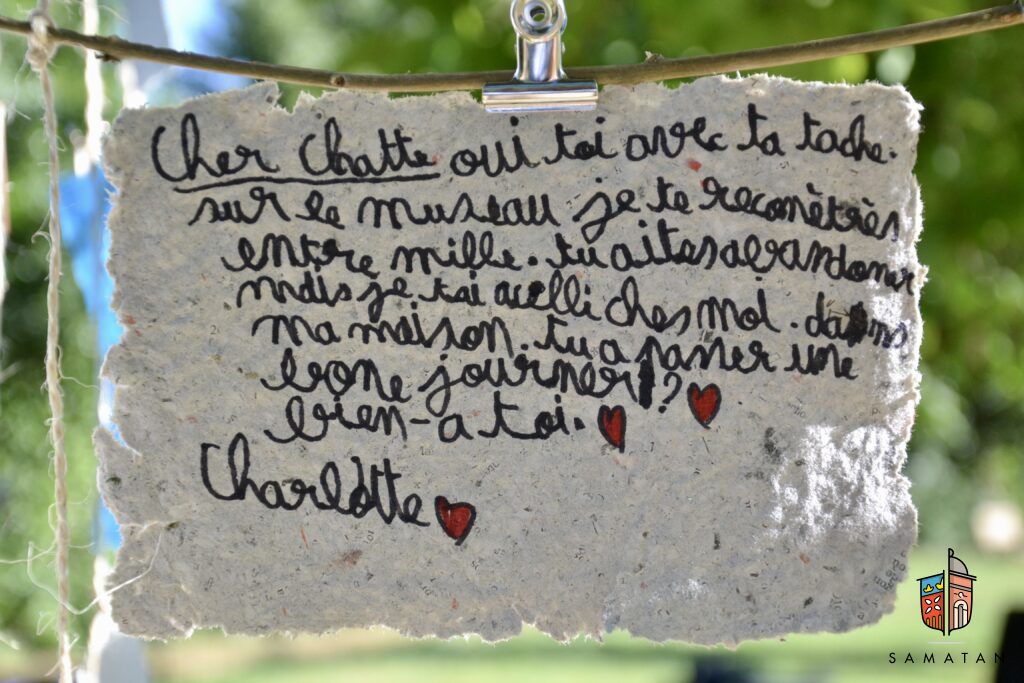 Cher Chatte oui toi avec ta tache.
sur le museau je te reconètrès
entre mille. tu aites abandoner
mais je tai acelli ches moi. dans
ma maison. tu a passer une
bone journer ?
bien-a toi.
Charlotte
SAMATAN